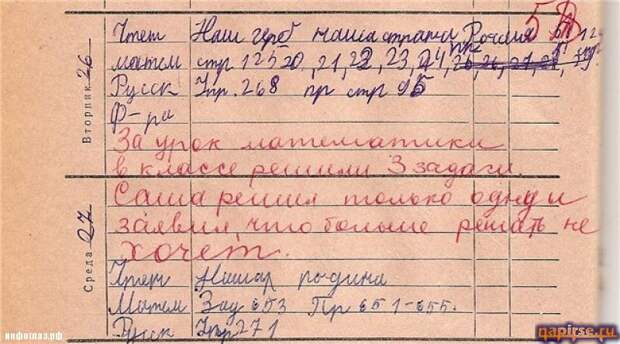 5
Чтен Наш герб наша страна Россия
матем стр 123 20, 21, 22, 23, 24
Русск Упр. 268 пр стр 95
Ф-ра
Вторник 26
За урок математики
в классе решили 3 задачи.
Саша решил только одну и
заявил, что больше решать не
хочет.
Среда 27
Чтен Нашар родина
Матем Зад 653 Пр 651-655.
Русск Упр 271
инфоглаз.рф
qapirse.ru